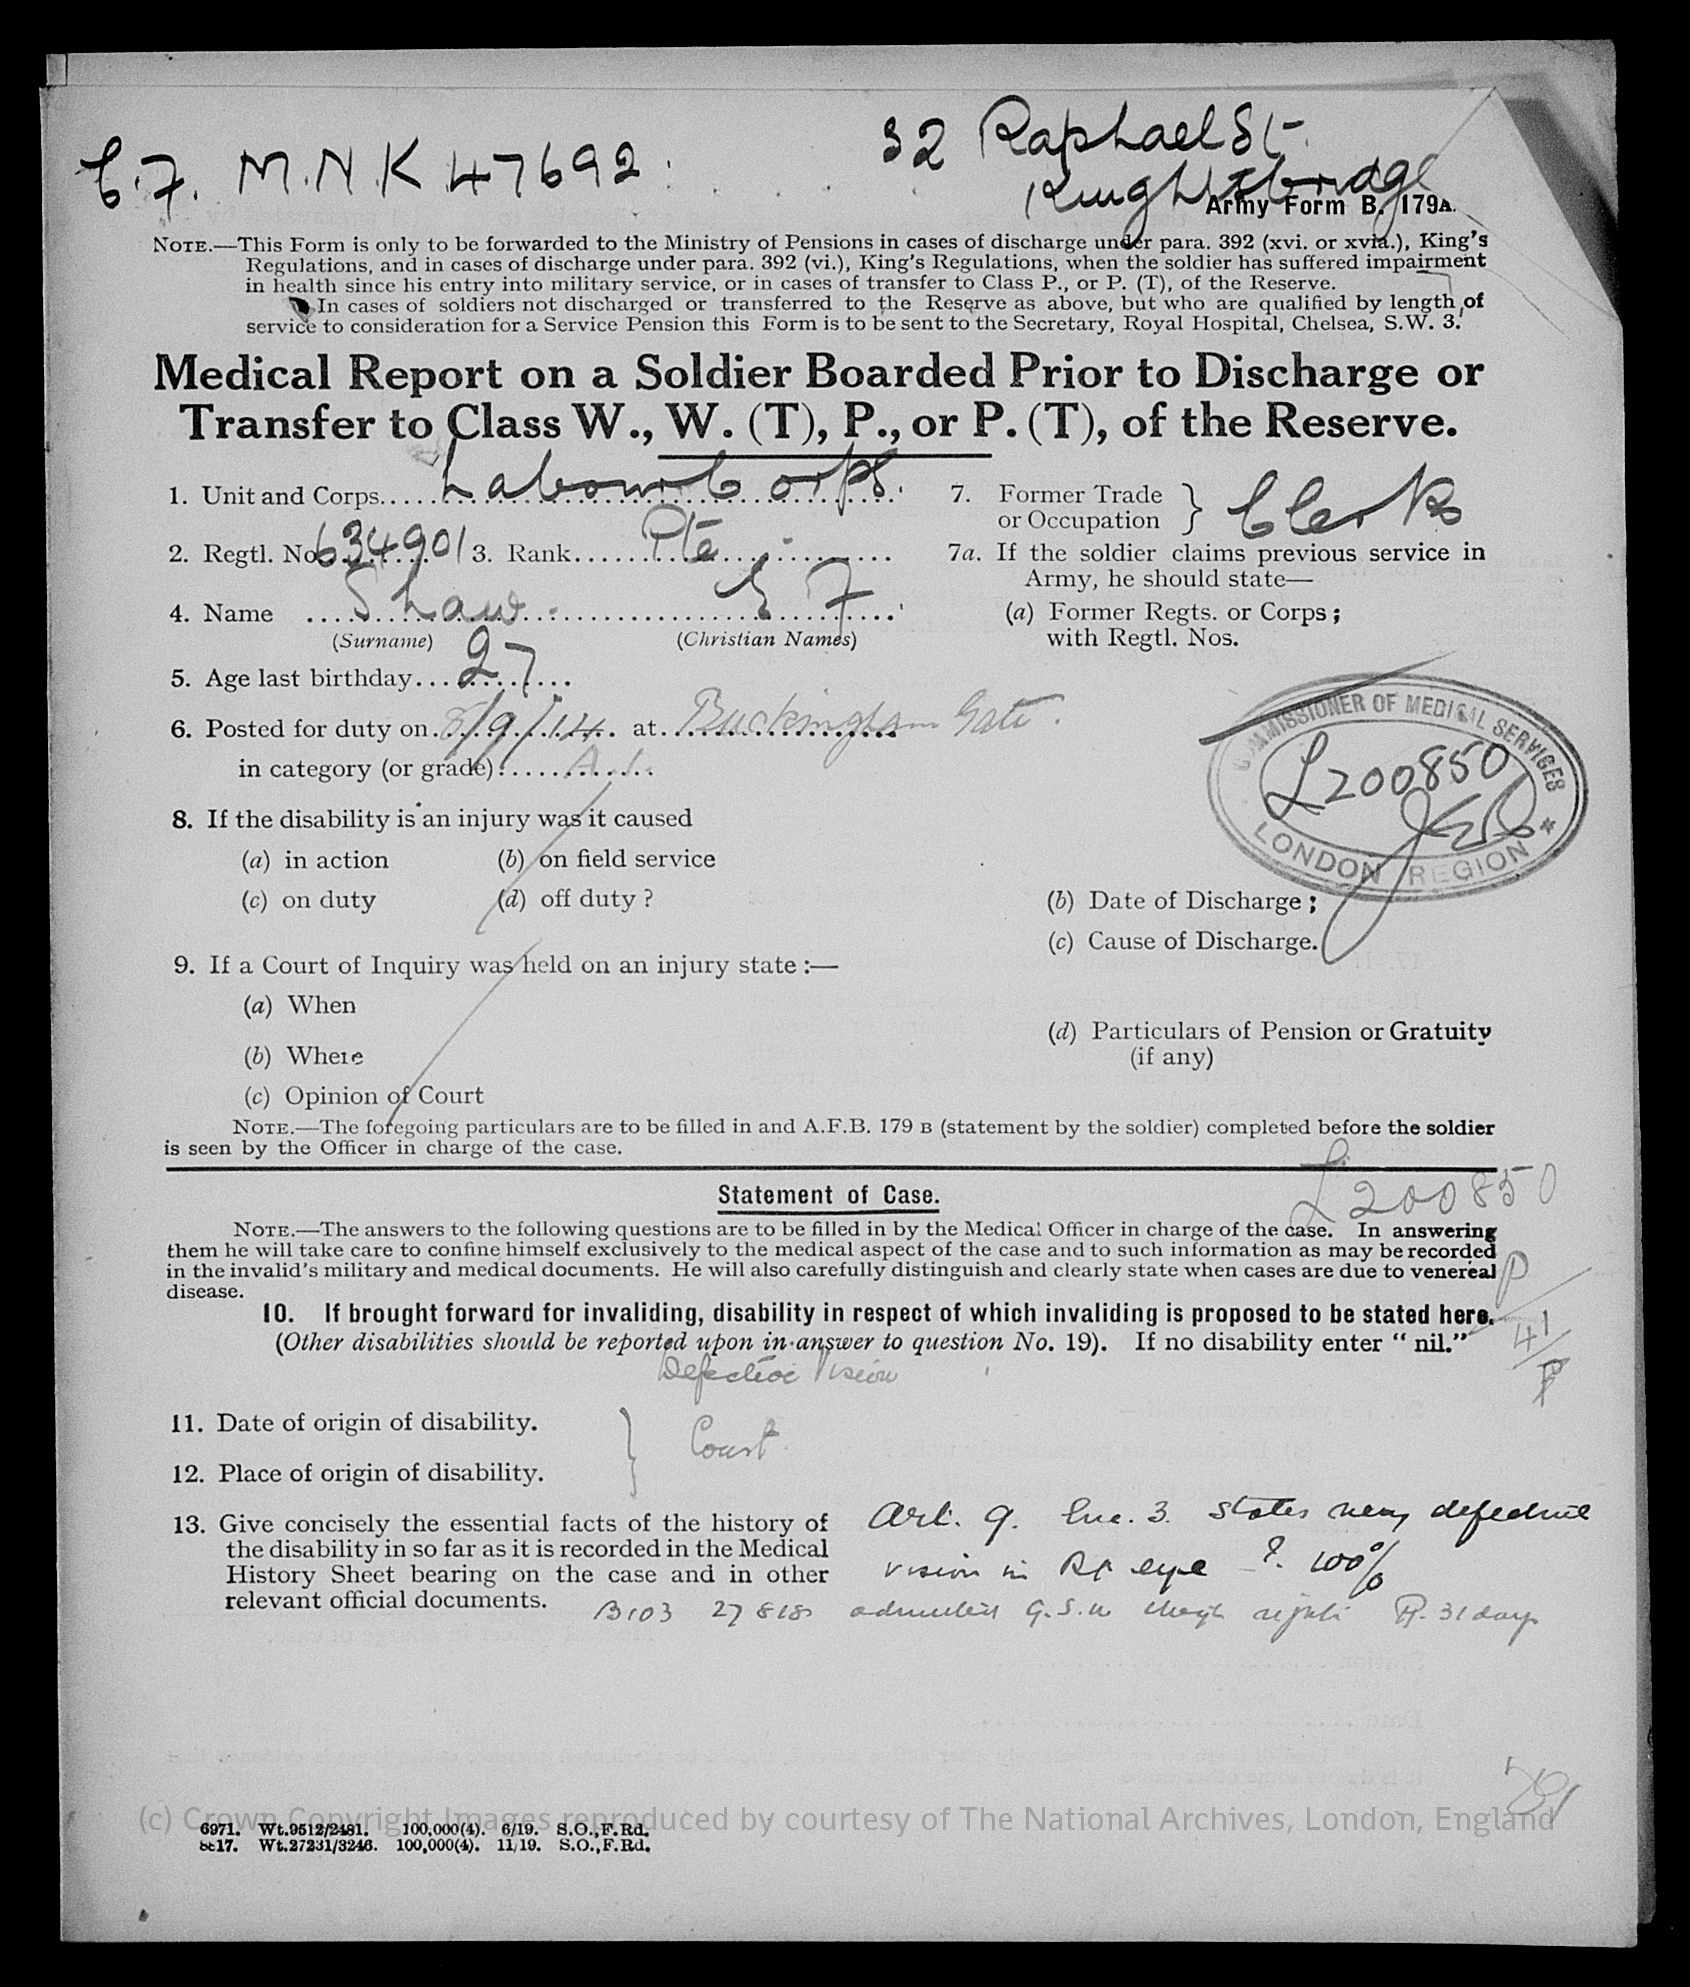 C.F. M.N.K 47692
32 Raphael St.
Knightsbridge
Army Form B. 179A.
NOTE.—This Form is only to be forwarded to the Ministry of Pensions in cases of discharge under para. 392 (xvi. or xvia.), King's
Regulations, and in cases of discharge under para. 392 (vi.), King's Regulations, when the soldier has suffered impairment
in health since his entry into military service, or in cases of transfer to Class P., or P. (T), of the Reserve.
In cases of soldiers not discharged or transferred to the Reserve as above, but who are qualified by length of
service to consideration for a Service Pension this Form is to be sent to the Secretary, Royal Hospital, Chelsea, S.W. 3.
Medical Report on a Soldier Boarded Prior to Discharge or
Transfer to Class W., W. (T), P., or P. (T), of the Reserve.
1. Unit and Corps..... Labour Corps.
2. Regtl. No. 634901 3. Rank........ Pte
4. Name Shaw E F
(Surname) (Christian Names)
5. Age last birthday... 27
6. Posted for duty on 8/9/14 at Buckingham Gate.
in category (or grade) A.1.
7. Former Trade or Occupation } Clerk
7a. If the soldier claims previous service in
Army, he should state—
(a) Former Regts. or Corps;
with Regtl. Nos.
COMMISSIONER OF MEDICAL SERVICES
L200850
LONDON REGION *
8. If the disability is an injury was it caused
(a) in action (b) on field service
(c) on duty (d) off duty ?
(b) Date of Discharge;
(c) Cause of Discharge.
9. If a Court of Inquiry was held on an injury state :—
(a) When
(b) Where
(c) Opinion of Court
(d) Particulars of Pension or Gratuity
(if any)
NOTE.—The foregoing particulars are to be filled in and A.F.B. 179 B (statement by the soldier) completed before the soldier
is seen by the Officer in charge of the case.
L200850
Statement of Case.
NOTE.—The answers to the following questions are to be filled in by the Medical Officer in charge of the case. In answering
them he will take care to confine himself exclusively to the medical aspect of the case and to such information as may be recorded
in the invalid's military and medical documents. He will also carefully distinguish and clearly state when cases are due to venereal
disease.
P
41
P
10. If brought forward for invaliding, disability in respect of which invaliding is proposed to be stated here.
(Other disabilities should be reported upon in answer to question No. 19). If no disability enter " nil."
Defective Vision
11. Date of origin of disability.
12. Place of origin of disability.
} Const.
13. Give concisely the essential facts of the history of
the disability in so far as it is recorded in the Medical
History Sheet bearing on the case and in other
relevant official documents.
Art. 9. Enc. 3. states very defective
vision in Rt eye - ?. 100%
B103 27 8 18 admitted G.S.W thigh right R. 31 days
(c) Crown Copyright Images reproduced by courtesy of The National Archives, London, England
6971. Wt.9512/2481. 100,000(4). 6/19. S.O.,F.Rd.
8817. Wt.27231/3246. 100,000(4). 11/19. S.O.,F.Rd.